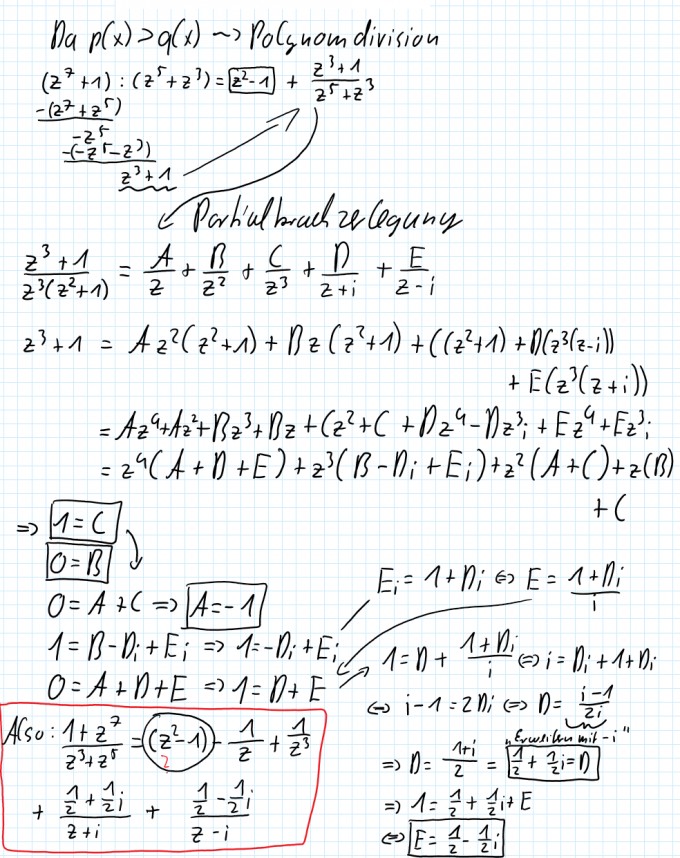 Da p(x) > q(x) ~> Polynomdivision
(z⁷+1) : (z⁵+z³) = z²-1 + (z³+1)/(z⁵+z³)
-(z⁷+z⁵)
-z⁵
-(-z⁵-z³)
z³+1
Partialbruchzerlegung
(z³+1)/(z³(z²+1)) = A/z + B/z² + C/z³ + D/(z+i) + E/(z-i)
z³+1 = Az²(z²+1) + Bz(z²+1) + C(z²+1) + D(z³(z-i))
+ E(z³(z+i))
= Az⁴+Az²+Bz³+Bz+Cz²+C+Dz⁴-Dz³i+Ez⁴+Ez³i
= z⁴(A+D+E)+z³(B-Di+Ei)+z²(A+C)+z(B)
+ C
=> 1=C
0=B
0=A+C => A=-1
1=B-Di+Ei => 1=-Di+Ei
0=A+D+E => 1=D+E
Ei = 1+Di <=> E = (1+Di)/i
1=D+ (1+Di)/i <=> i=Di+1+Di
<=> i-1=2Di <=> D= (i-1)/(2i)
"Erweitern mit -i"
=> D= (1+i)/2 = 1/2 + 1/2 i = D
=> 1= 1/2 + 1/2 i+E
<=> E= 1/2 - 1/2 i
Also: (1+z⁷)/(z³+z⁵) = (z²-1) - 1/z + 1/z³
2
+ (1/2 + 1/2 i)/(z+i) + (1/2 - 1/2 i)/(z-i)